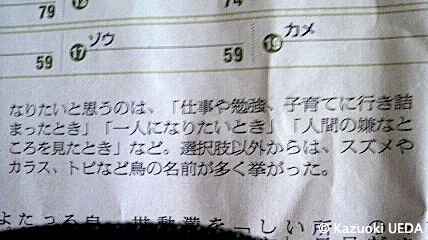 79
74
⑰ ゾウ
59
59
⑲ カメ
なりたいと思うのは、「仕事や勉強、子育てに行き詰
まったとき」「一人になりたいとき」「人間の嫌なと
ころを見たとき」など。選択肢以外からは、スズメや
カラス、トビなど鳥の名前が多く挙がった。
© Kazuoki UEDA